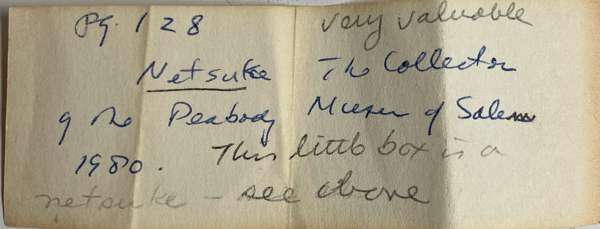 Pg. 128 very valuable
Netsuke The Collection
of the Peabody Museum of Salem
1980. This little box is a
netsuke - see above